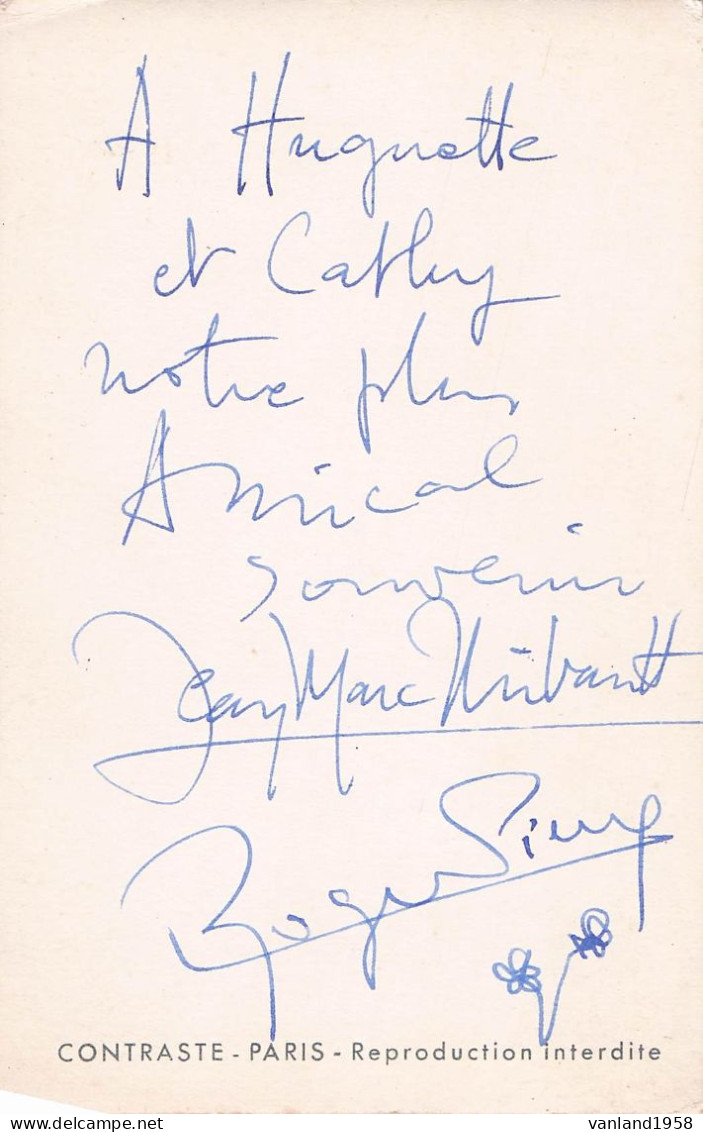 A Huguette
et Cathy
notre plus
Amical
souvenir
Jean Marc Thibault
Roger Pierre
CONTRASTE - PARIS - Reproduction interdite
vanland1958